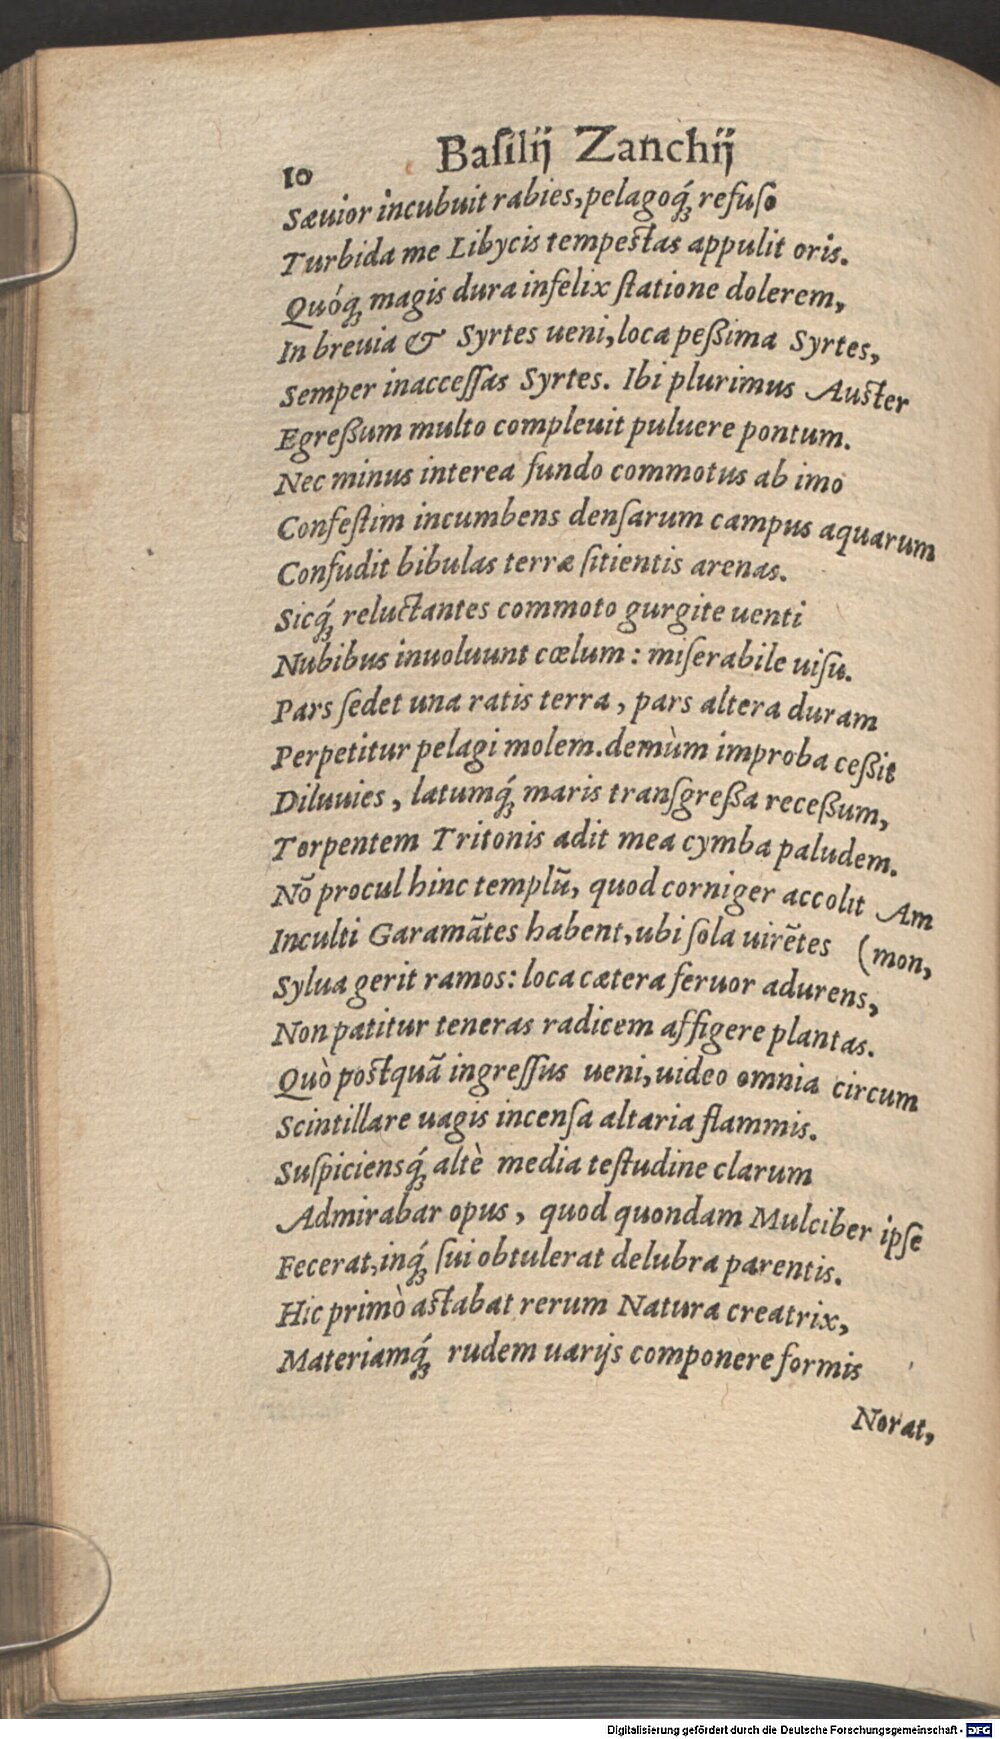 10 Baſilij Zanchij
Sæuior incubuit rabies, pelagoq́; refuſo
Turbida me Libycis tempeſtas appulit oris.
Quóq; magis dura infelix ſtatione dolerem,
In breuia & Syrtes ueni, loca peßima Syrtes,
Semper inacceſſas Syrtes. Ibi plurimus Auſter
Egreßum multo compleuit puluere pontum.
Nec minus interea fundo commotus ab imo
Confeſtim incumbens denſarum campus aquarum
Confudit bibulas terræ ſitientis arenas.
Sicq́; reluctantes commoto gurgite uenti
Nubibus inuoluunt cœlum: miſerabile uiſu.
Pars ſedet una ratis terra, pars altera duram
Perpetitur pelagi molem. demùm improba ceßit
Diluuies, latumq́; maris tranſgreßa receßum,
Torpentem Tritonis adit mea cymba paludem.
Nō procul hinc templū, quod corniger accolit Am
Inculti Garamātes habent, ubi ſola uirētes (mon,
Sylua gerit ramos: loca cætera feruor adurens,
Non patitur teneras radicem affigere plantas.
Quò poſtquā ingreſſus ueni, uideo omnia circum
Scintillare uagis incenſa altaria flammis.
Suſpiciensq́; altè media teſtudine clarum
Admirabar opus, quod quondam Mulciber ipſe
Fecerat, inq́; ſui obtulerat delubra parentis.
Hic primò aſtabat rerum Natura creatrix,
Materiamq́; rudem uarijs componere formis
Norat,
Digitalisierung gefördert durch die Deutsche Forschungsgemeinschaft - DFG